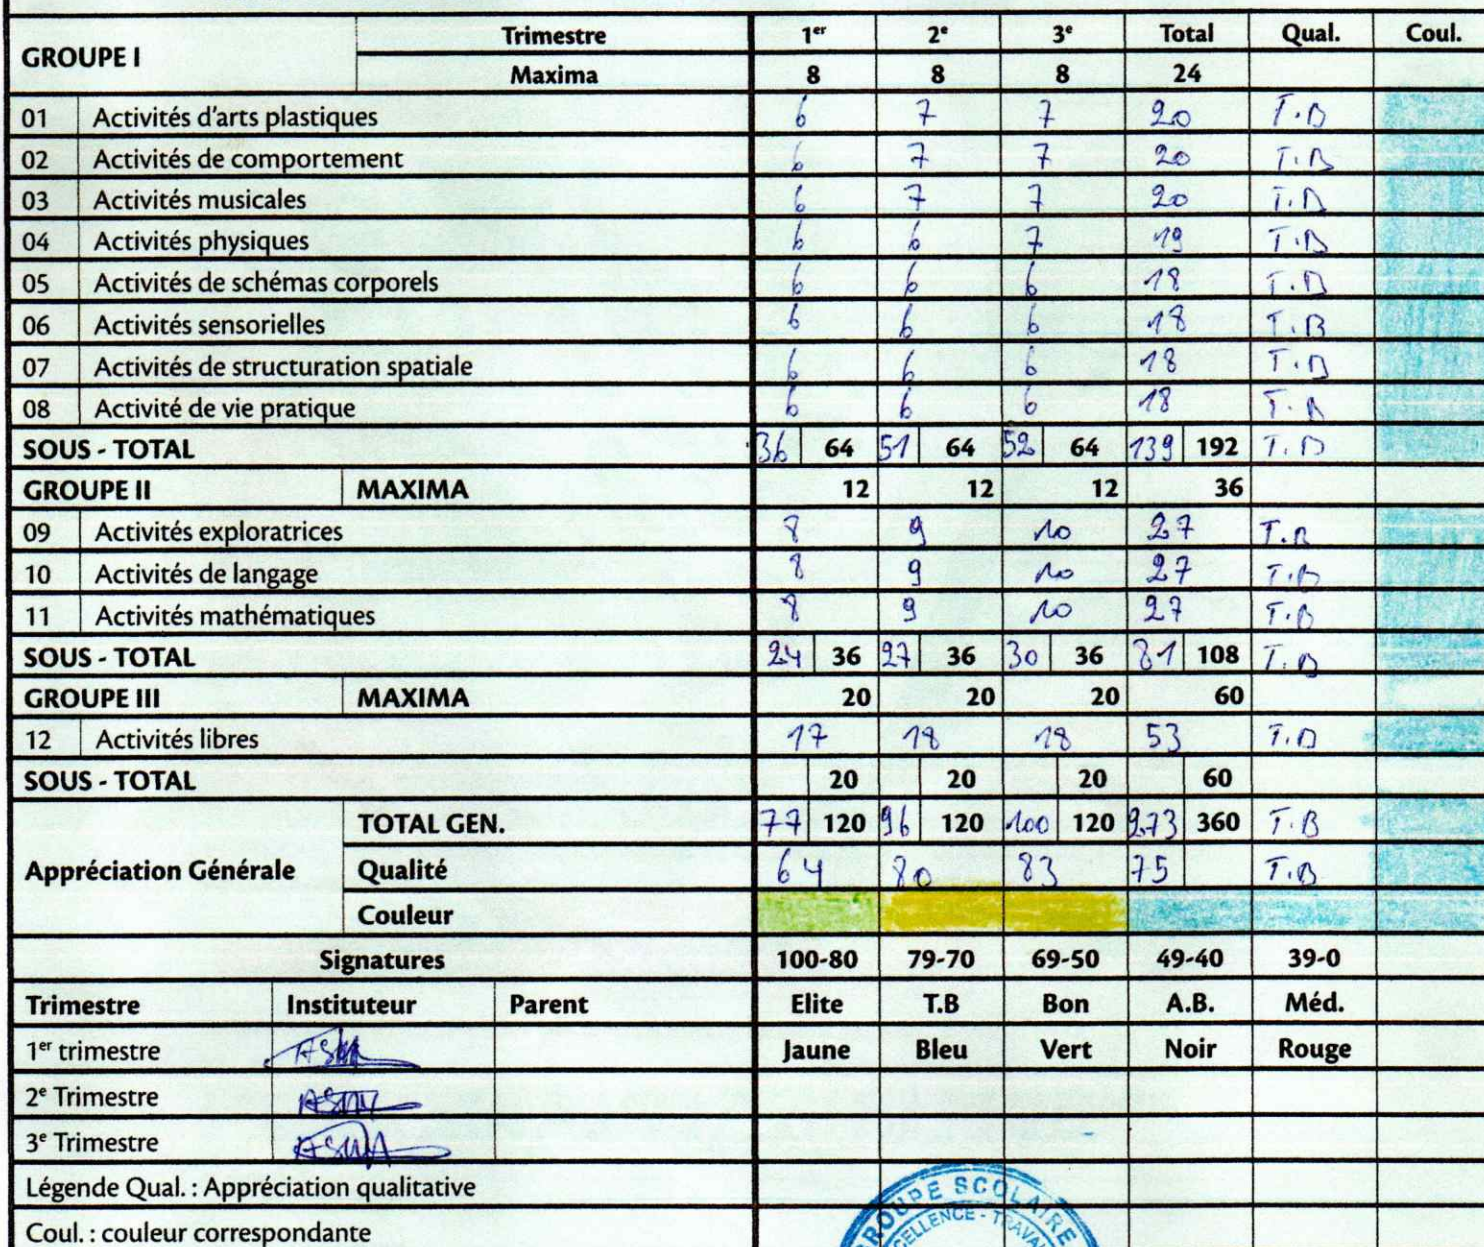 GROUPE I Trimestre 1er 2e 3e Total Qual. Coul.
Maxima 8 8 8 24
01 Activités d'arts plastiques 6 7 7 20 T.B
02 Activités de comportement 6 7 7 20 T.B
03 Activités musicales 6 7 7 20 T.B
04 Activités physiques 6 6 7 19 T.B
05 Activités de schémas corporels 6 6 6 18 T.B
06 Activités sensorielles 6 6 6 18 T.B
07 Activités de structuration spatiale 6 6 6 18 T.B
08 Activité de vie pratique 6 6 6 18 T.B
SOUS - TOTAL 36 64 51 64 52 64 139 192 T.B
GROUPE II MAXIMA 12 12 12 36
09 Activités exploratrices 8 9 10 27 T.B
10 Activités de langage 8 9 10 27 T.B
11 Activités mathématiques 8 9 10 27 T.B
SOUS - TOTAL 24 36 27 36 30 36 81 108 T.B
GROUPE III MAXIMA 20 20 20 60
12 Activités libres 17 18 18 53 T.B
SOUS - TOTAL 20 20 20 60
TOTAL GEN. 77 120 96 120 100 120 273 360 T.B
Appréciation Générale Qualité 64 80 83 75 T.B
Couleur
Signatures 100-80 79-70 69-50 49-40 39-0
Trimestre Instituteur Parent Elite T.B Bon A.B. Méd.
1er trimestre Jaune Bleu Vert Noir Rouge
2e Trimestre
3e Trimestre
Légende Qual. : Appréciation qualitative
Coul. : couleur correspondante
GROUPE SCOLAIRE